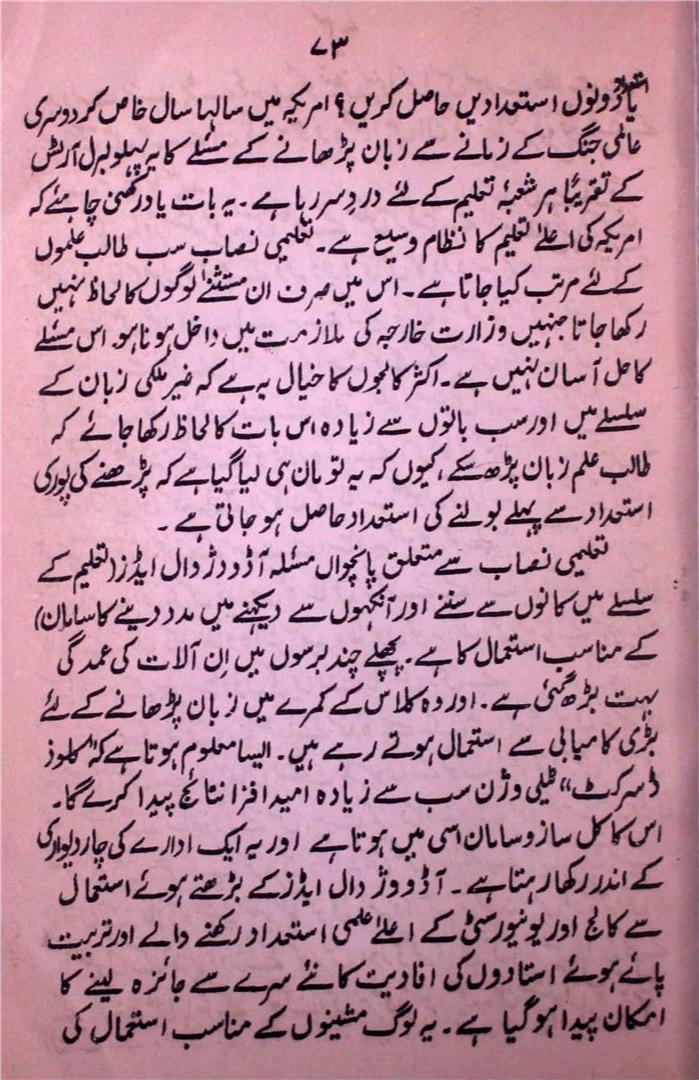 ۷۳
یا دونوں استعدادیں حاصل کریں؟ امریکہ میں سالہا سال خاص کر دوسری
عالمی جنگ کے زمانے سے زبان پڑھانے کے مسئلے کا یہ پہلو لبرل آرٹس
کے تقریباً ہر شعبۂ تعلیم کے لئے دردِ سر رہا ہے۔ یہ بات یاد رکھنی چاہئے کہ
امریکہ کی اعلےٰ تعلیم کا نظام وسیع ہے۔ تعلیمی نصاب سب طالب علموں
کے لئے مرتب کیا جاتا ہے۔ اس میں صرف ان مستثنےٰ لوگوں کا لحاظ نہیں
رکھا جاتا جنہیں وزارت خارجہ کی ملازمت میں داخل ہونا ہو۔ اس مسئلے
کا حل آسان نہیں ہے۔ اکثر کالجوں کا خیال یہ ہے کہ غیر ملکی زبان کے
سلسلے میں اور سب باتوں سے زیادہ اس بات کا لحاظ رکھا جائے کہ
طالب علم زبان پڑھ سکے، کیوں کہ یہ تو مان ہی لیا گیا ہے کہ پڑھنے کی پوری
استعداد سے پہلے بولنے کی استعداد حاصل ہو جاتی ہے۔
تعلیمی نصاب سے متعلق پانچواں مسئلہ آڈووژوال ایڈز (تعلیم کے
سلسلے میں کانوں سے سننے اور آنکھوں سے دیکھنے میں مدد دینے کا سامان)
کے مناسب استعمال کا ہے۔ پچھلے چند برسوں میں اِن آلات کی عمدگی
بہت بڑھ گئی ہے۔ اور وہ کلاس کے کمرے میں زبان پڑھانے کے لئے
بڑی کامیابی سے استعمال ہوتے رہے ہیں۔ ایسا معلوم ہوتا ہے کہ "کلوزڈ
سرکٹ" ٹیلی وژن سب سے زیادہ امید افزا نتائج پیدا کرے گا۔
اس کا کل ساز و سامان اسی میں ہوتا ہے اور یہ ایک ادارے کی چار دیواری
کے اندر رکھا رہتا ہے۔ آڈووژوال ایڈز کے بڑھتے ہوئے استعمال
سے کالج اور یونیورسٹی کے اعلےٰ علمی استعداد رکھنے والے اور تربیت
پائے ہوئے استادوں کی افادیت کا نئے سرے سے جائزہ لینے کا
امکان پیدا ہو گیا ہے۔ یہ لوگ مشینوں کے مناسب استعمال کی